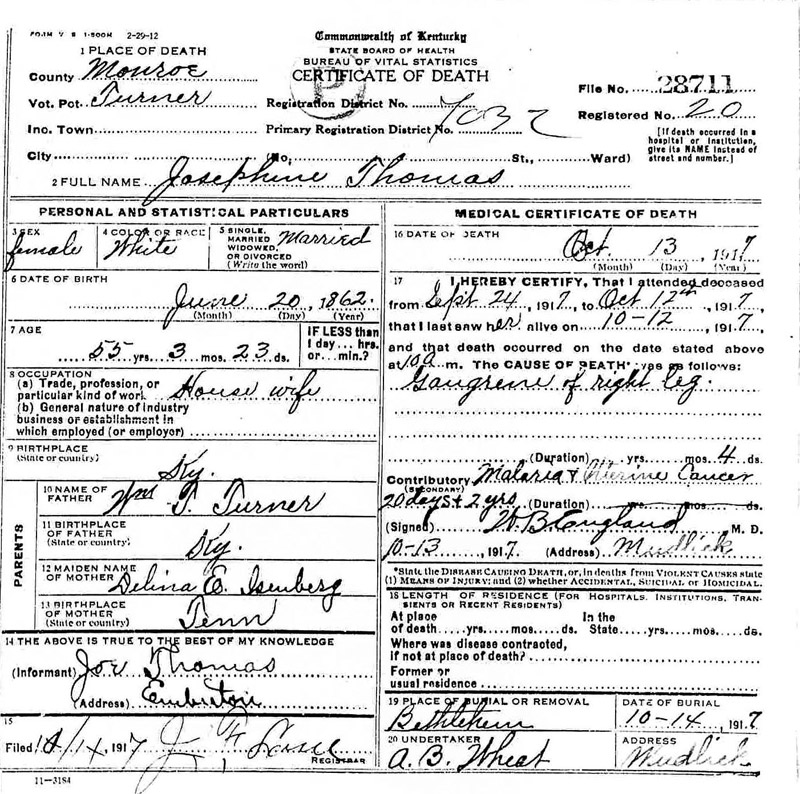 FORM V S 1-500M 2-29-12
Commonwealth of Kentucky
STATE BOARD OF HEALTH
BUREAU OF VITAL STATISTICS
CERTIFICATE OF DEATH
1 PLACE OF DEATH
County Monroe
Vot. Pct. Turner
Inc. Town
City
Registration District No.
Primary Registration District No. 7032
(No. St., Ward)
File No. 28711
Registered No. 20
[If death occurred in a hospital or institution, give its NAME instead of street and number.]
2 FULL NAME Josephine Thomas
PERSONAL AND STATISTICAL PARTICULARS
3 SEX female
4 COLOR OR RACE White
5 SINGLE, MARRIED WIDOWED, OR DIVORCED (Write the word) Married
6 DATE OF BIRTH
June 20, 1862.
(Month) (Day) (Year)
7 AGE
55 yrs. 3 mos. 23 ds.
IF LESS than 1 day... hrs. or... min.?
8 OCCUPATION
(a) Trade, profession, or particular kind of work House wife
(b) General nature of industry business or establishment in which employed (or employer)
9 BIRTHPLACE
(State or country)
Ky.
PARENTS
10 NAME OF FATHER Wm T. Turner
11 BIRTHPLACE OF FATHER (State or country) Ky.
12 MAIDEN NAME OF MOTHER Delina E. Isenberg
13 BIRTHPLACE OF MOTHER (State or country) Tenn
14 THE ABOVE IS TRUE TO THE BEST OF MY KNOWLEDGE
(Informant) Joe Thomas
(Address) Emberton
15
Filed 10/14, 1917 J F
REGISTRAR
11-3184
MEDICAL CERTIFICATE OF DEATH
16 DATE OF DEATH
Oct. 13, 1917
(Month) (Day) (Year)
17 I HEREBY CERTIFY, That I attended deceased
from Sept 24, 1917, to Oct 12th, 1917,
that I last saw her alive on 10-12, 1917,
and that death occurred on the date stated above
at 10a m. The CAUSE OF DEATH* was as follows:
Gangrene of right leg.
(Duration) yrs. mos. 4 ds.
Contributory Malaria & Uterine Cancer
(SECONDARY)
20 days & 2 yrs (Duration) ds.
(Signed) W B England M. D.
10-13, 1917 (Address) Mudlick
*State the DISEASE CAUSING DEATH, or, in deaths from VIOLENT CAUSES state
(1) MEANS OF INJURY; and (2) whether ACCIDENTAL, SUICIDAL or HOMICIDAL.
18 LENGTH OF RESIDENCE (FOR HOSPITALS, INSTITUTIONS, TRANSIENTS OR RECENT RESIDENTS)
At place of death yrs. mos. ds.
In the State yrs. mos. ds.
Where was disease contracted,
if not at place of death?
Former or usual residence
19 PLACE OF BURIAL OR REMOVAL
Bethlehem
DATE OF BURIAL
10-14, 1917
20 UNDERTAKER
A. B. Wheat
ADDRESS
Mudlick